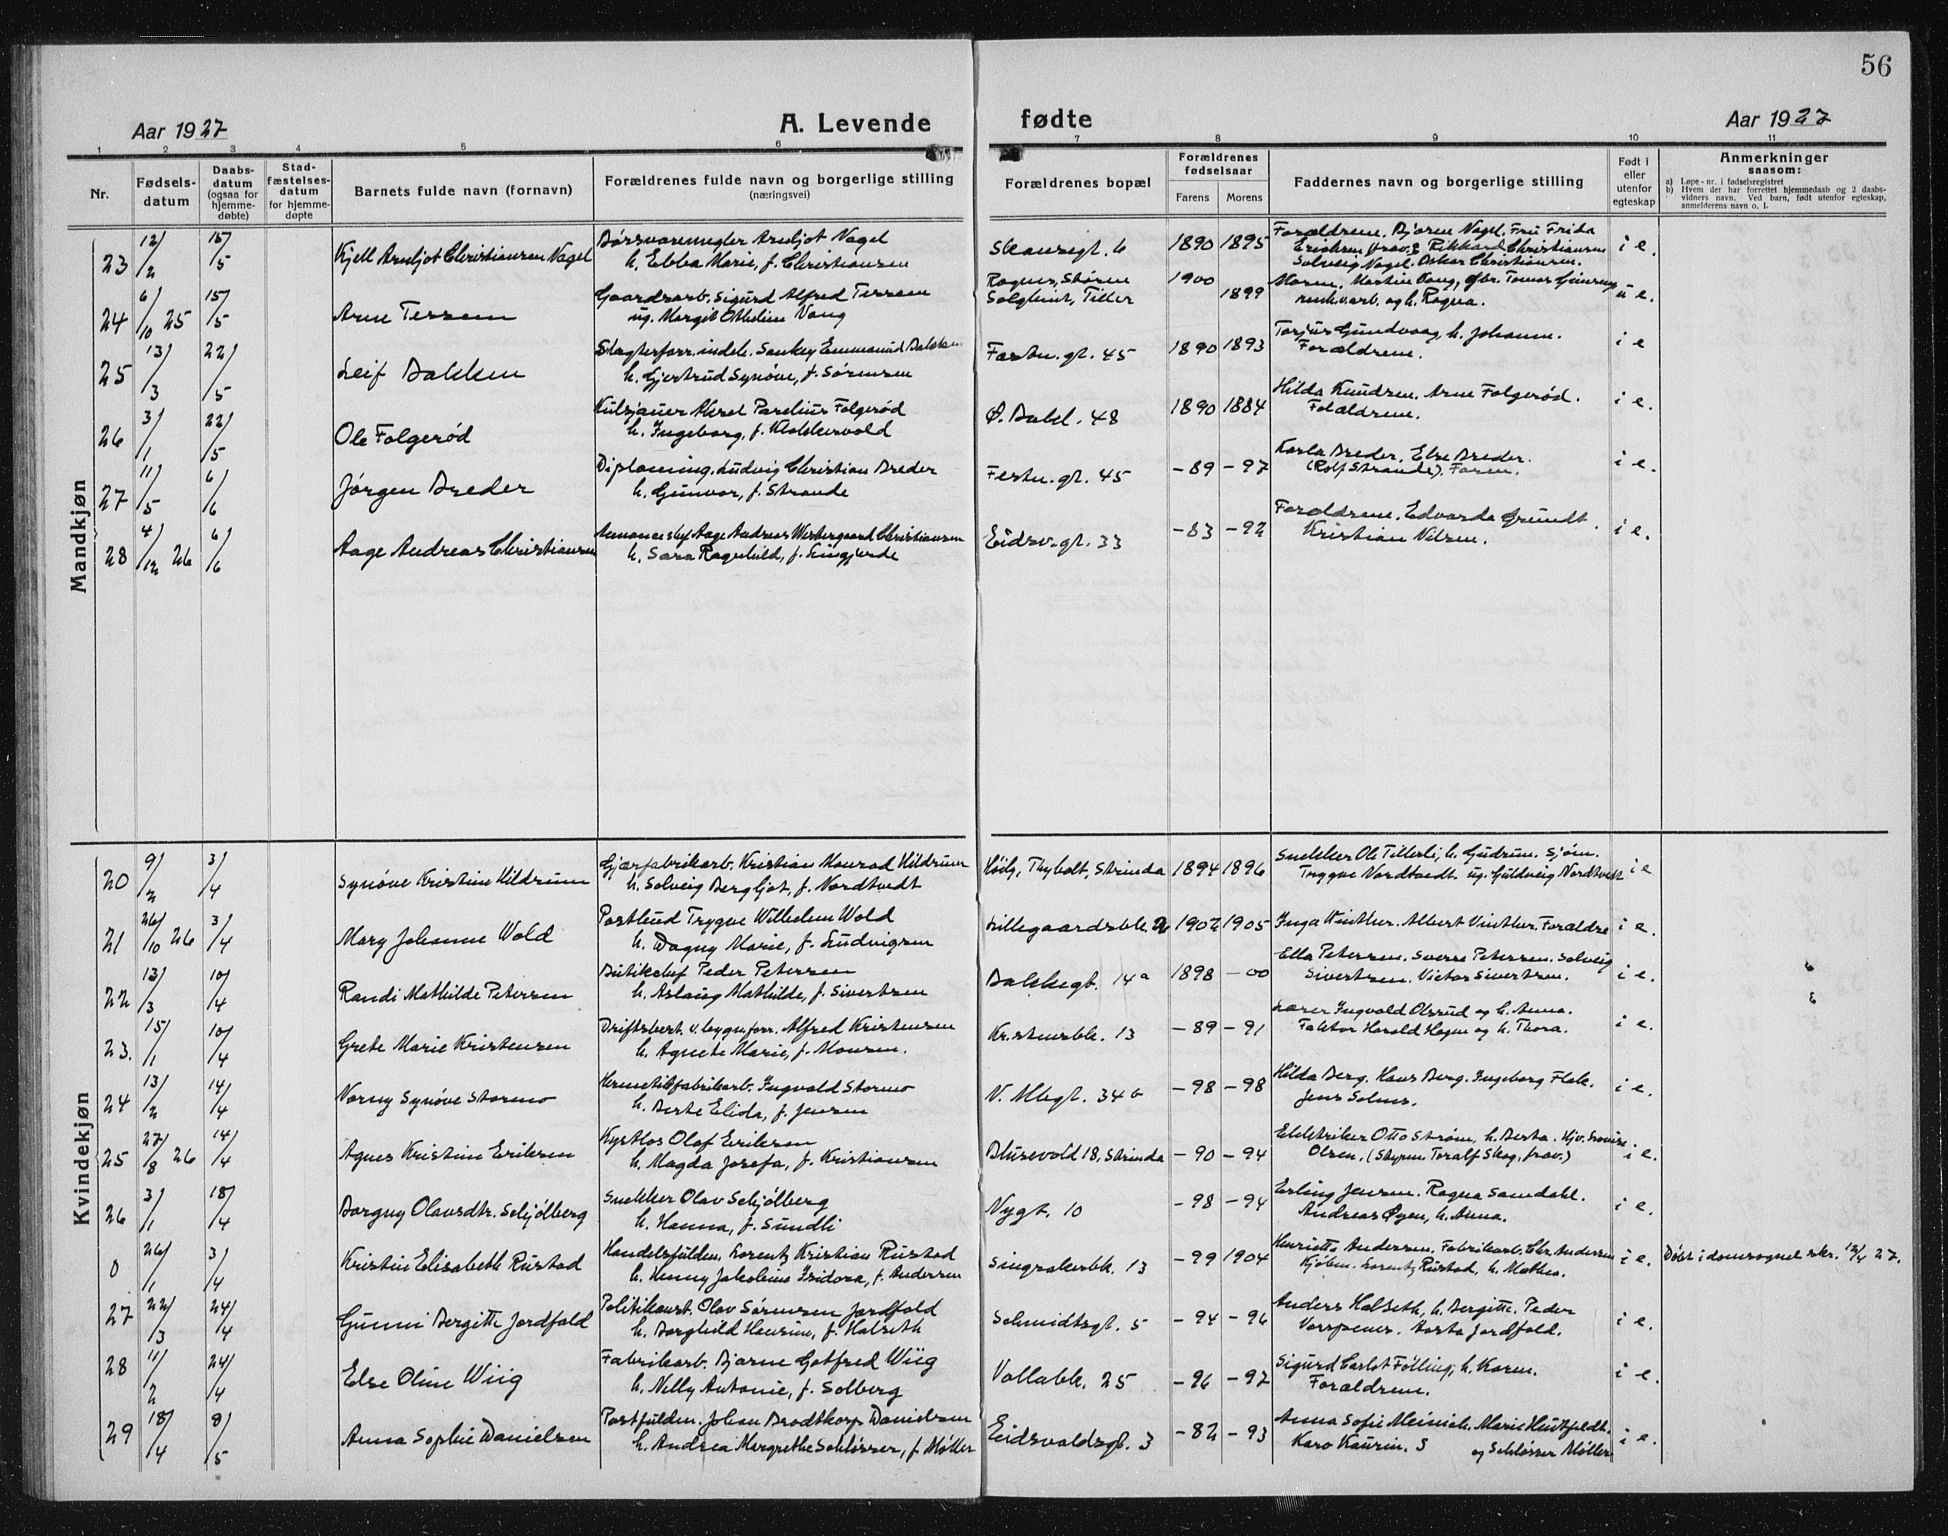 56
Aar 1927
A. Levende
fødte
Aar 1927
1 2 3 4 5 6 7 8 9 10 11
Nr.
Fødsels-
datum
Daabs-
datum
(ogsaa for
hjemme-
døbte)
Stad-
fæstelses-
datum
for hjemme-
døpte
Barnets fulde navn (fornavn)
Forældrenes fulde navn og borgerlige stilling
(næringsvei)
Forældrenes bopæl
Forældrenes
fødselsaar
Farens
Morens
Faddernes navn og borgerlige stilling
Født i
eller
utenfor
egteskap
Anmerkninger
saasom:
a) Løpe-nr. i fødselsregistret
b) Hvem der har forrettet hjemmedaab og 2 daabs-
vidners navn. Ved barn, født utenfor egteskap,
anmelderens navn o. l.
Mandkjøn
23 12/2 15/5 Kjell Arnljot Christiansen Nagel Børsvaremegler Arnljot Nagel
h. Ebba Marie, f. Christiansen
Skansegt. 6 1890 1895 Forældrene. Bjarne Nagel. Fru Frida
Erichsen frav. Rikkard Christiansen
Solveig Nagel. Oskar Christiansen. i e.
24 6/10 25 15/5 Arne Tessem Gaardsarb. Sigurd Alfred Tessem
ug. Margit Othelie Vang
Rognes, Støren 1900
Solghint, Tiller 1899
Moren. Martin Vang, gbr. Tomas
renh.arb. og h. Ragna. u e.
25 13/3 22/5 Leif Bakken Slagterforr. indeh. Sankey Emmanuel Bakken
h. Gjertrud Synøve, f. Sørensen
Festn.gt. 45 1890 1893 Torjus Gundvaag, h. Johanne.
Forældrene. i e
26 3/1 22/5 Ole Folgerød Kulsjauer Aksel Parelius Folgerød
h. Ingeborg, f. Klokkervold
Ø. Bakl. 48 1890 1884 Hilda Knudsen. Arne Folgerød.
Forældrene. i e.
27 11/5 6/6 Jørgen Breder Diploming. Ludvig Christian Breder
h. Gunvor, f. Strande
Festn.gt. 45 -89 -97 Karla Breder. Else Breder.
(Rolf Strande). Faren. i e.
28 4/12 26 6/6 Aage Andreas Christiansen Annoncechef Aage Andreas Westergaard Christiansen
h. Sara Ragnhild, f. Lingjerde
Eidsv.gt. 33 -83 -92 Forældrene. Edvarda Grundt.
Kristian Nilsen. i e.
Kvindekjøn
20 9/2 3/4 Synøve Kristine Hildrum Gjærfabrikarb. Kristian Monrad Hildrum
h. Solveig Bergljot, f. Nordtvedt
Høilg, Thyholt, Strinda 1894 1896 Snekker Ole Tillerli, h. Gudrun. Sjøm.
Trygve Nordtvedt. ug. Guldveig Nordtvedt i e
21 26/10 26 3/4 Mary Johanne Wold Postbud Trygve Wilhelm Wold
h. Dagny Marie, f. Ludvigsen
Lillegaardsbk. 2 1902 1905 Inga Winther. Albert Vinther. Forældre i e.
22 13/3 10/4 Randi Mathilde Petersen Butikchef Peder Petersen
h. Aslaug Mathilde, f. Sivertsen
Bakkegt. 14a 1898 -00 Ella Petersen. Sverre Petersen. Solveig
Sivertsen. Victor Sivertsen. i e.
23. 15/1 10/4 Grete Marie Kristensen Driftsbest. v. bygn.forr. Alfred Kristensen
h. Agnete Marie, f. Monsen.
Kr.stensbk. 13 -89 -91 Lærer Ingvald Olsrud og h. Anna.
Faktor Harald Hagen og h. Thora. i e.
24 13/2 14/4 Norny Synøve Stormo Hermetikfabrikarb. Ingvald Stormo
h. Berte Elida, f. Jensen
V. Mlegt. 34b -98 -98 Hilda Berg. Hans Berg. Ingeborg Flak.
Jens Solnes. i e.
25 27/8 26 14/4 Agnes Kristine Eriksen Kystlos Olaf Eriksen
h. Magda Josefa, f. Kristiansen
Blusevold 18, Strinda -90 -94 Elektriker Otto Strøm, h. Berta. Hjv. Lovise
Olsen. (Styrm Toralf Skog, frav.) i e.
26 3/1 18/4 Borgny Olavsdtr. Schjølberg Snekker Olav Schjølberg
h. Hanna, f. Sundli
Nygt. 10 -98 -94 Erling Jensen. Ragna Samdahl.
Andreas Øyen, h. Anna. i e.
0 26/1 3/4 Kristine Elisabeth Rustad Handelsfuldm. Lorentz Kristian Rustad
h. Henny Jakobine Isidora, f. Andersen
Singsakerbk. 13 -99 1904 Henriette Andersen. Fabrikarb. Chr. Andersen
Kjøbm. Lorentz Rustad, h. Mathea. i e. Døbt i domsognet skr. 12/4 27.
27 22/3 24/4 Gunni Bergitte Jordfald Politikonst. Olav Sørensen Jordfald
h. Borghild Hansine, f. Halseth
Schmidtsgt. 5 -94 -96 Anders Halseth, h. Bergitte. Peder
Vorpenes. Aasta Jordfald. i e.
28 11/2 24/4 Else Oline Wiig Fabrikarb. Bjarne Gotfred Wiig
h. Nelly Antonie, f. Solberg
Vollabk. 25 -96 -97 Sigurd Carlot Følling, h. Karen.
Forældrene. i e.
29 18/4 8/5 Anna Sophie Danielsen Postfuldm. Johan Brodtkorp Danielsen
h. Andrea Margrethe Schlösser, f. Møller
Eidsvoldsgt. 3 -82 -93 Anna Sofie Meinich. Marie Huitfeldt.
Karo Kaurin. og Schlösser Møller i e.